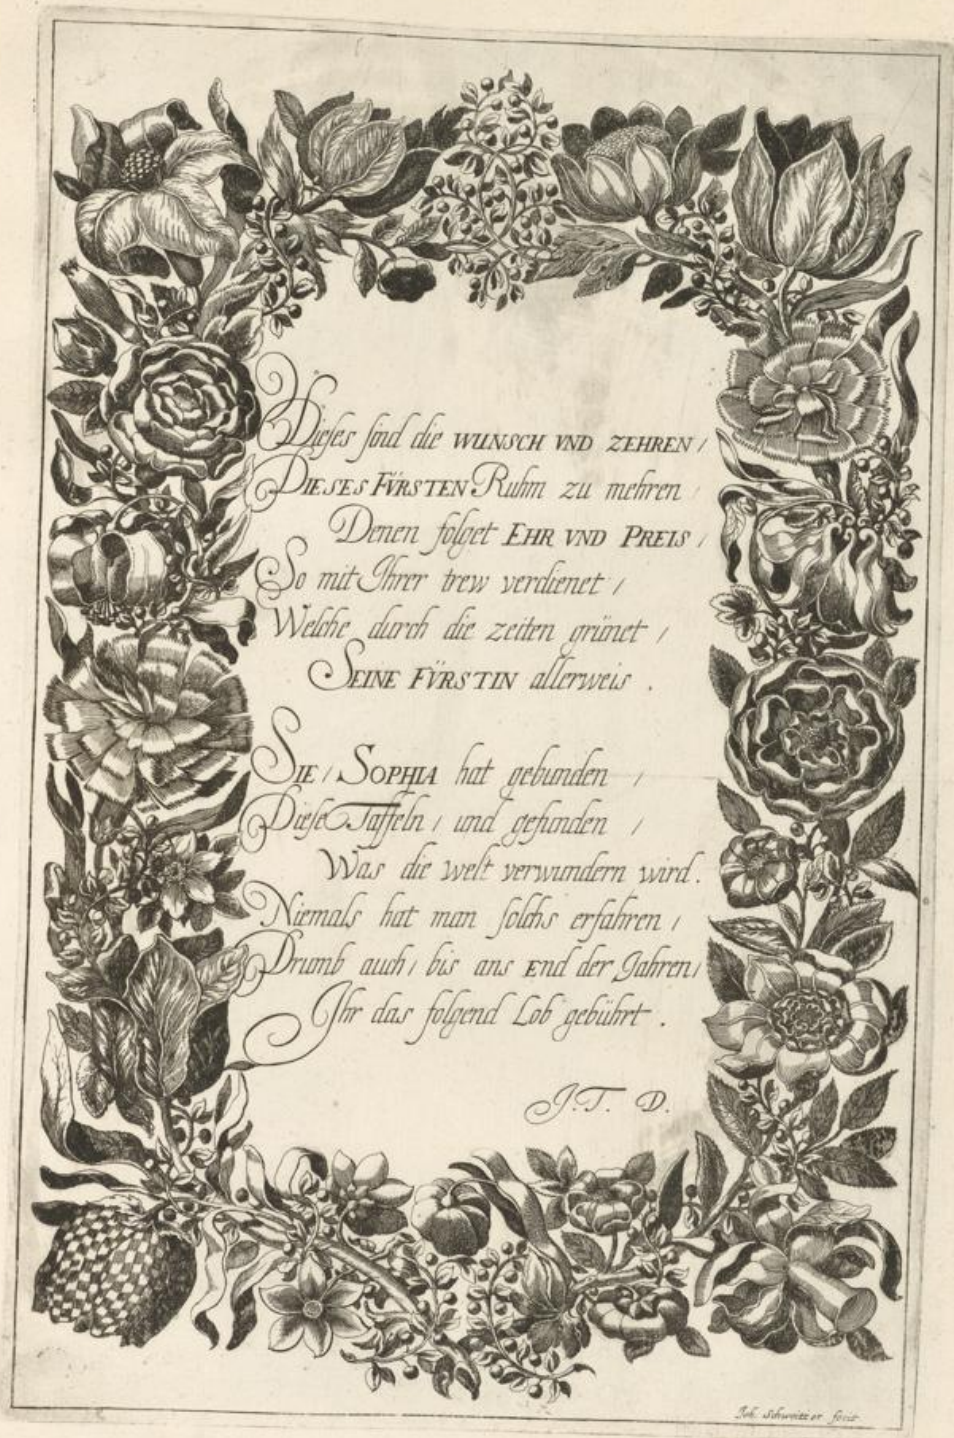 Dieses sind die WUNSCH VND ZEHREN /
DIESES FÜRSTEN Ruhm zu mehren /
Denen folget EHR VND PREIS /
So mit Ihrer trew verdienet /
Welche durch die zeiten grünet /
SEINE FÜRSTIN allerweis .
SIE / SOPHIA hat gebunden /
Diese Taffeln / und gefunden /
Was die welt verwundern wird .
Niemals hat man solchs erfahren /
Drumb auch / bis ans End der Jahren /
Ihr das folgend Lob gebührt .
J. T. D.
Joh. Schweitzer fecit